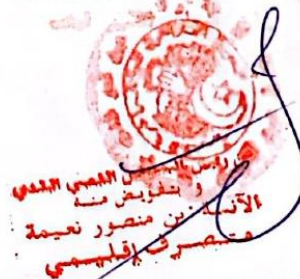 رئيس المجلس الشعبي البلدي
و بتفويض منه
الآنسة بن منصور نعيمة
متصرف إقليمي